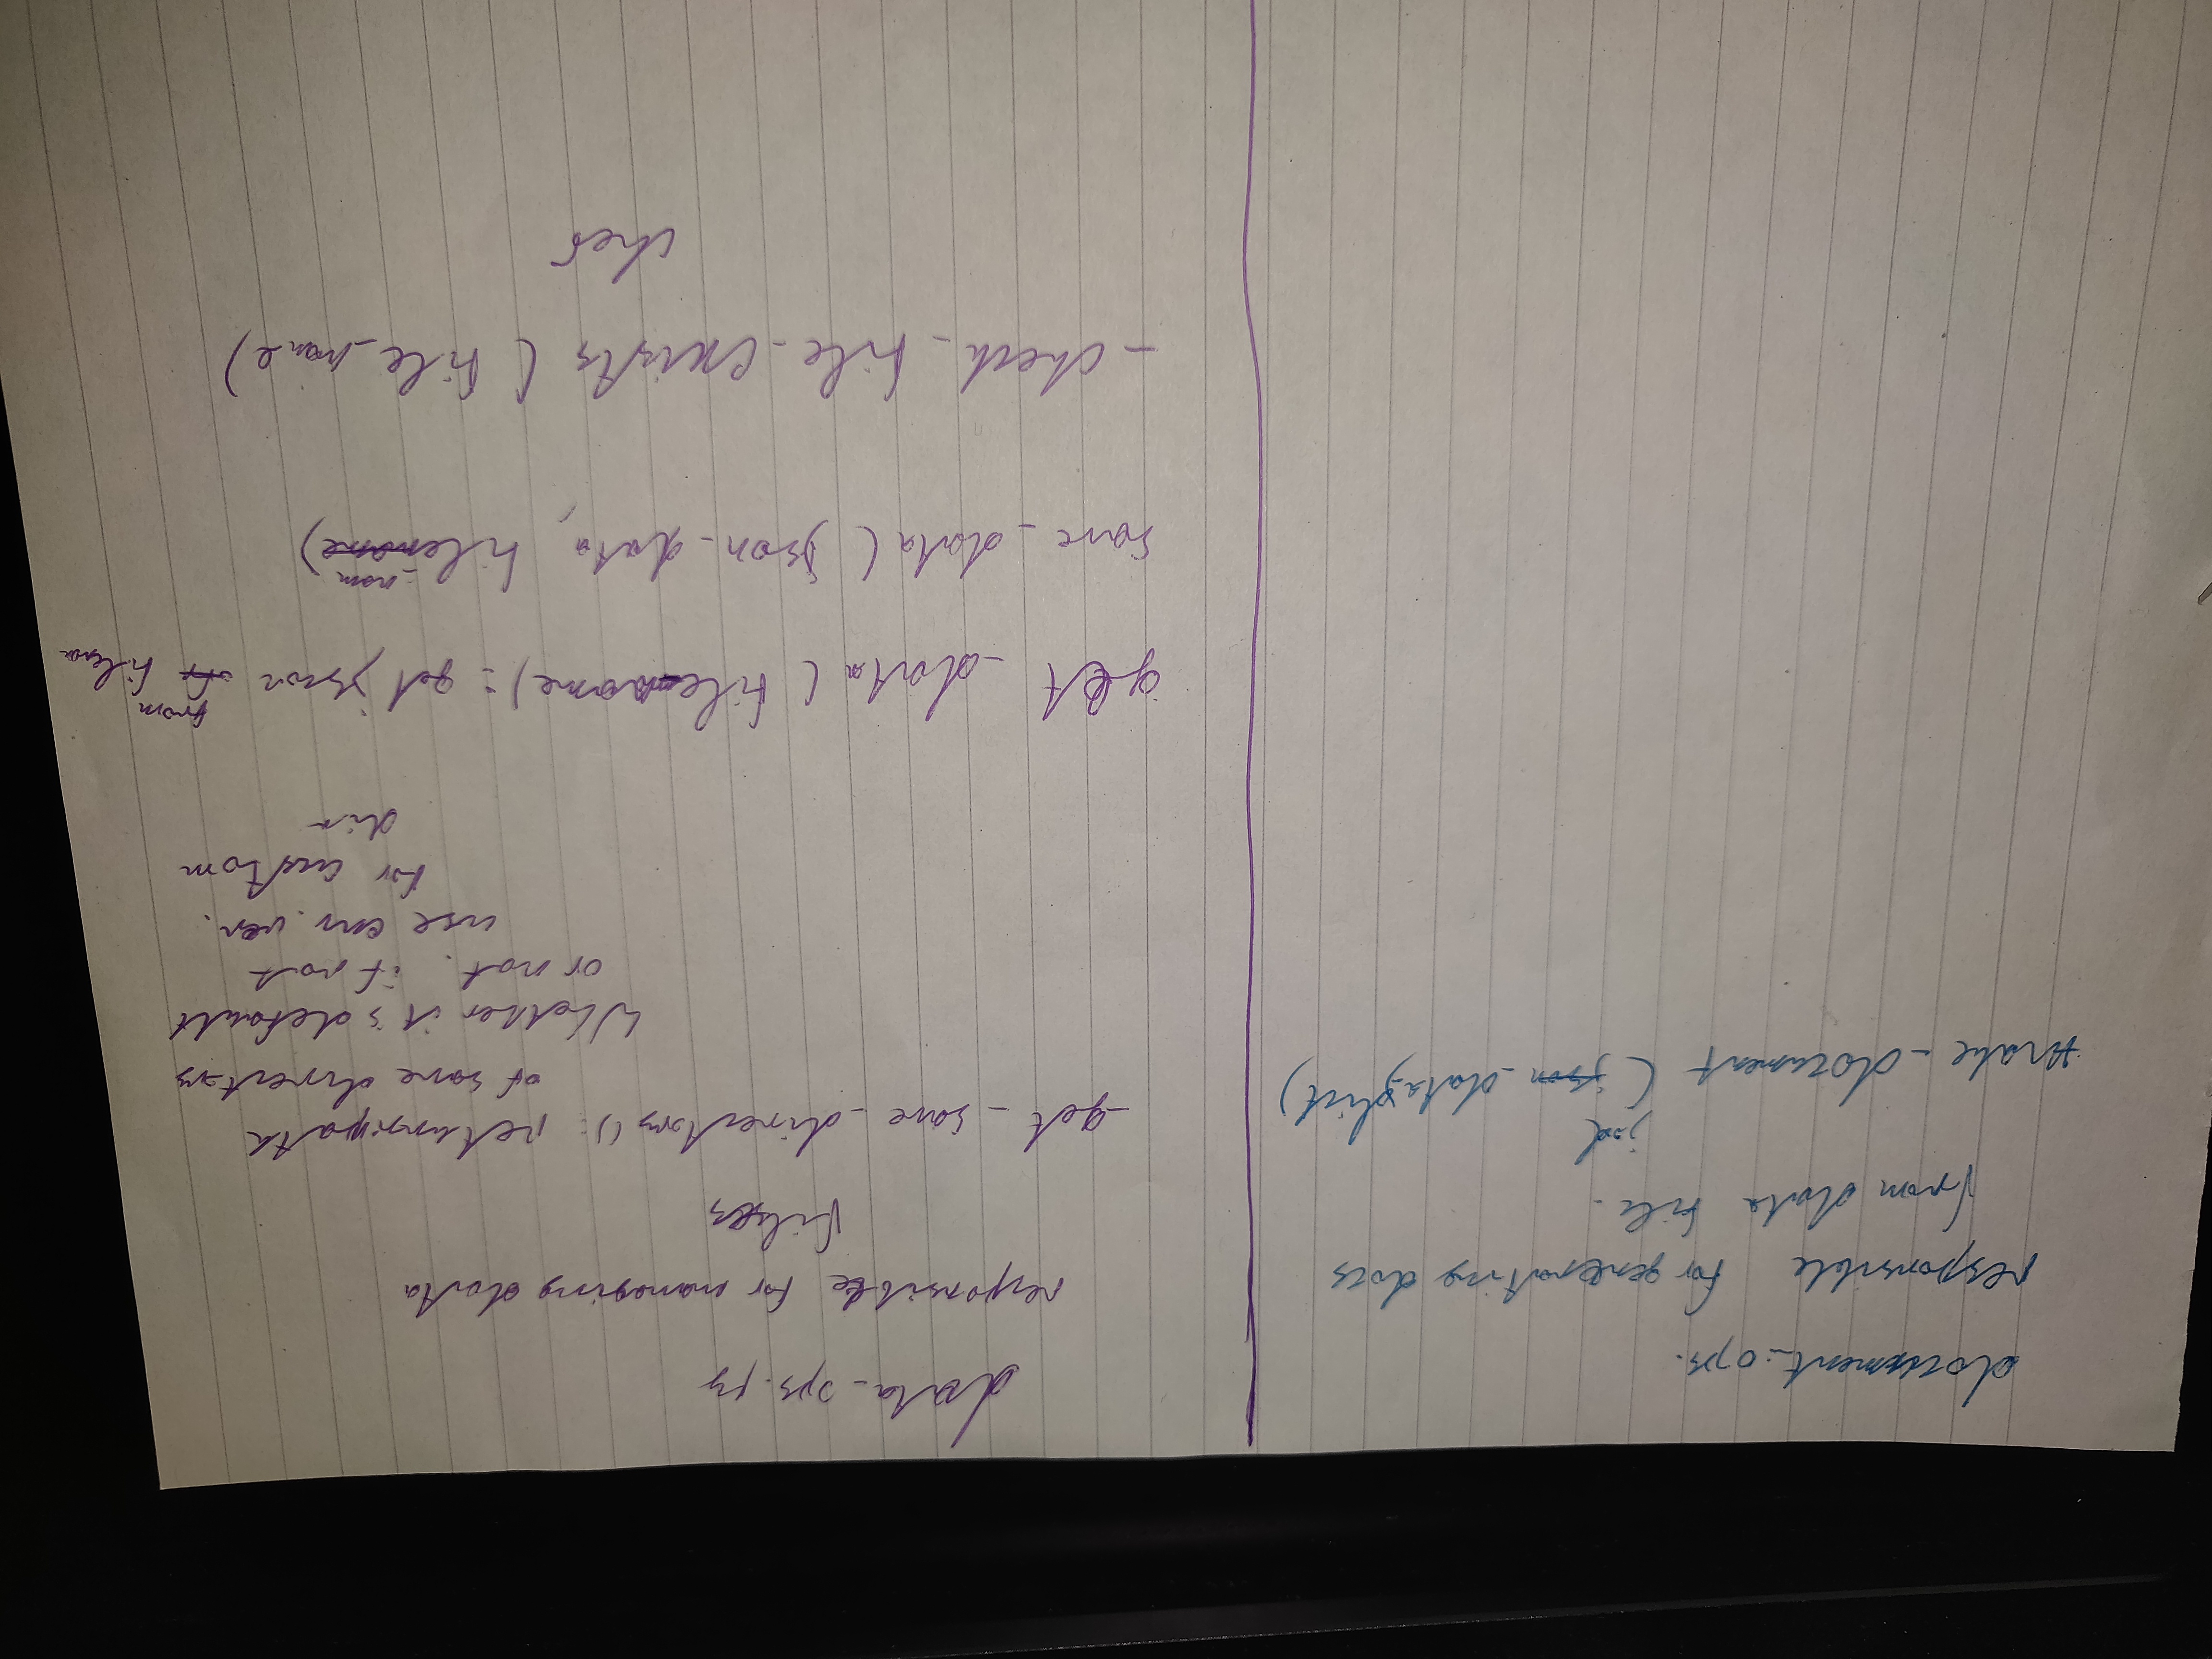 document_ops.
responsible for generating docs
from data file.
make_document (job_data: dict)
data_ops.py
responsible for managing data
files
_get_save_directory(): returns path
of save directory
Whether it's default
or not. if not
use env. var.
for custom
dir
get_data(filename): get json from
save_data(json_data, file
_check_file_exists (file_name)